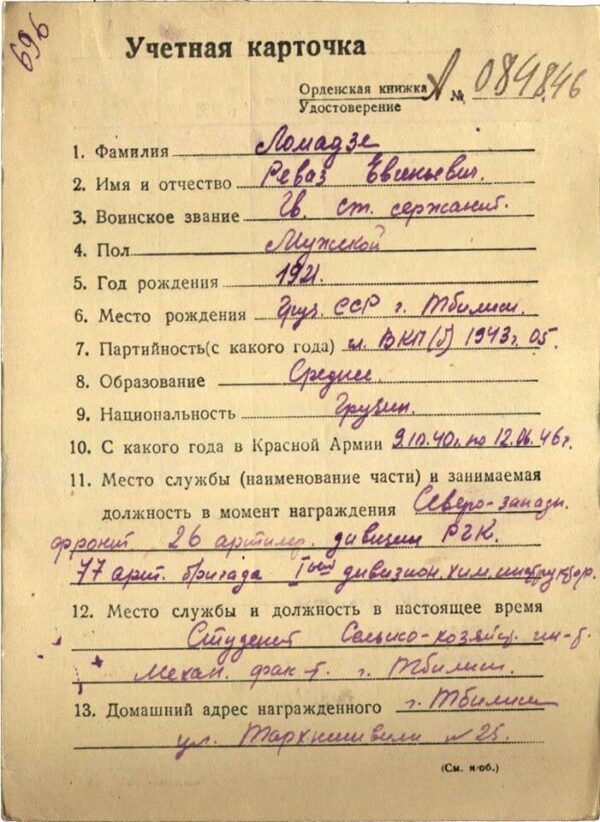 696
Учетная карточка
Орденская книжка А № 084846
Удостоверение
1. Фамилия Ломадзе
2. Имя и отчество Реваз Евгеньевич.
3. Воинское звание Гв. ст. сержант.
4. Пол Мужской
5. Год рождения 1921.
6. Место рождения Груз. ССР г. Тбилиси.
7. Партийность(с какого года) чл. ВКП(б) 1943г. 05.
8. Образование Среднее.
9. Национальность Грузин.
10. С какого года в Красной Армии 9.10.40г. по 12.06.46г.
11. Место службы (наименование части) и занимаемая
должность в момент награждения Северо-западн.
фронт 26 артилер. дивизии РГК.
77 арт. бригада Iый дивизион. хим. инструктор.
12. Место службы и должность в настоящее время
Студент Сельско-хозяйс. ин-т.
Механ. фак-т. г. Тбилиси.
13. Домашний адрес награжденного г. Тбилиси
ул. N 25.
(См. н/об.)